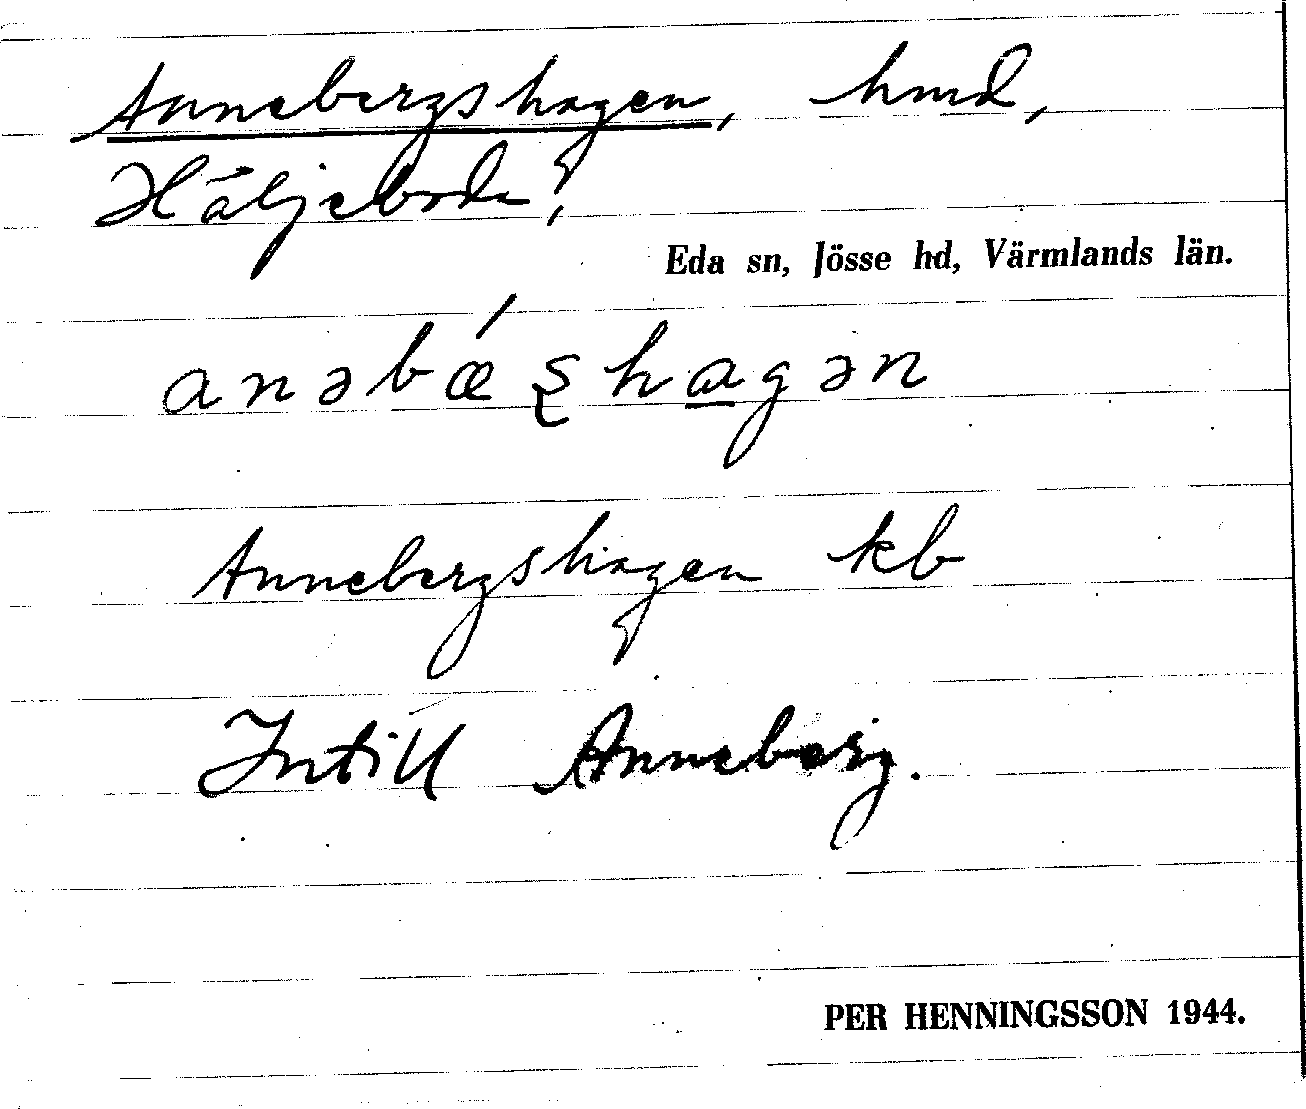 Annebergshagen, hmd,
Häljeboda,
Eda sn, Jösse hd, Värmlands län.
anəbǽʂhagən
Annebergshagen kb
Intill Anneberg.
PER HENNINGSSON 1944.